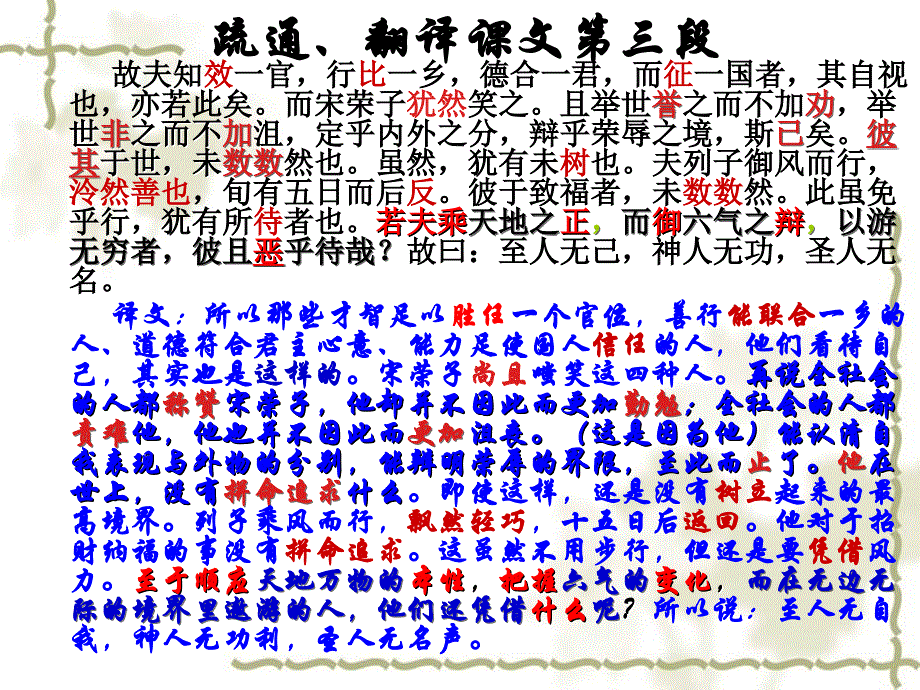 疏通、翻译课文第三段
故夫知效一官，行比一乡，德合一君，而征一国者，其自视
也，亦若此矣。而宋荣子犹然笑之。且举世誉之而不加劝，举
世非之而不加沮，定乎内外之分，辩乎荣辱之境，斯已矣。彼
其于世，未数数然也。虽然，犹有未树也。夫列子御风而行，
泠然善也，旬有五日而后反。彼于致福者，未数数然。此虽免
乎行，犹有所待者也。若夫乘天地之正，而御六气之辩，以游
无穷者，彼且恶乎待哉？故曰：至人无己，神人无功，圣人无
名。
译文：所以那些才智足以胜任一个官位，善行能联合一乡的
人、道德符合君主心意、能力足使国人信任的人，他们看待自
己，其实也是这样的。宋荣子尚且嗤笑这四种人。再说全社会
的人都称赞宋荣子，他却并不因此而更加勤勉；全社会的人都
责难他，他也并不因此而更加沮丧。（这是因为他）能认清自
我表现与外物的分别，能辨明荣辱的界限，至此而止了。他在
世上，没有拼命追求什么。即使这样，还是没有树立起来的最
高境界。列子乘风而行，飘然轻巧，十五日后返回。他对于招
财纳福的事没有拼命追求。这虽然不用步行，但还是要凭借风
力。至于顺应天地万物的本性，把握六气的变化，而在无边无
际的境界里遨游的人，他们还凭借什么呢？所以说：至人无自
我，神人无功利，圣人无名声。